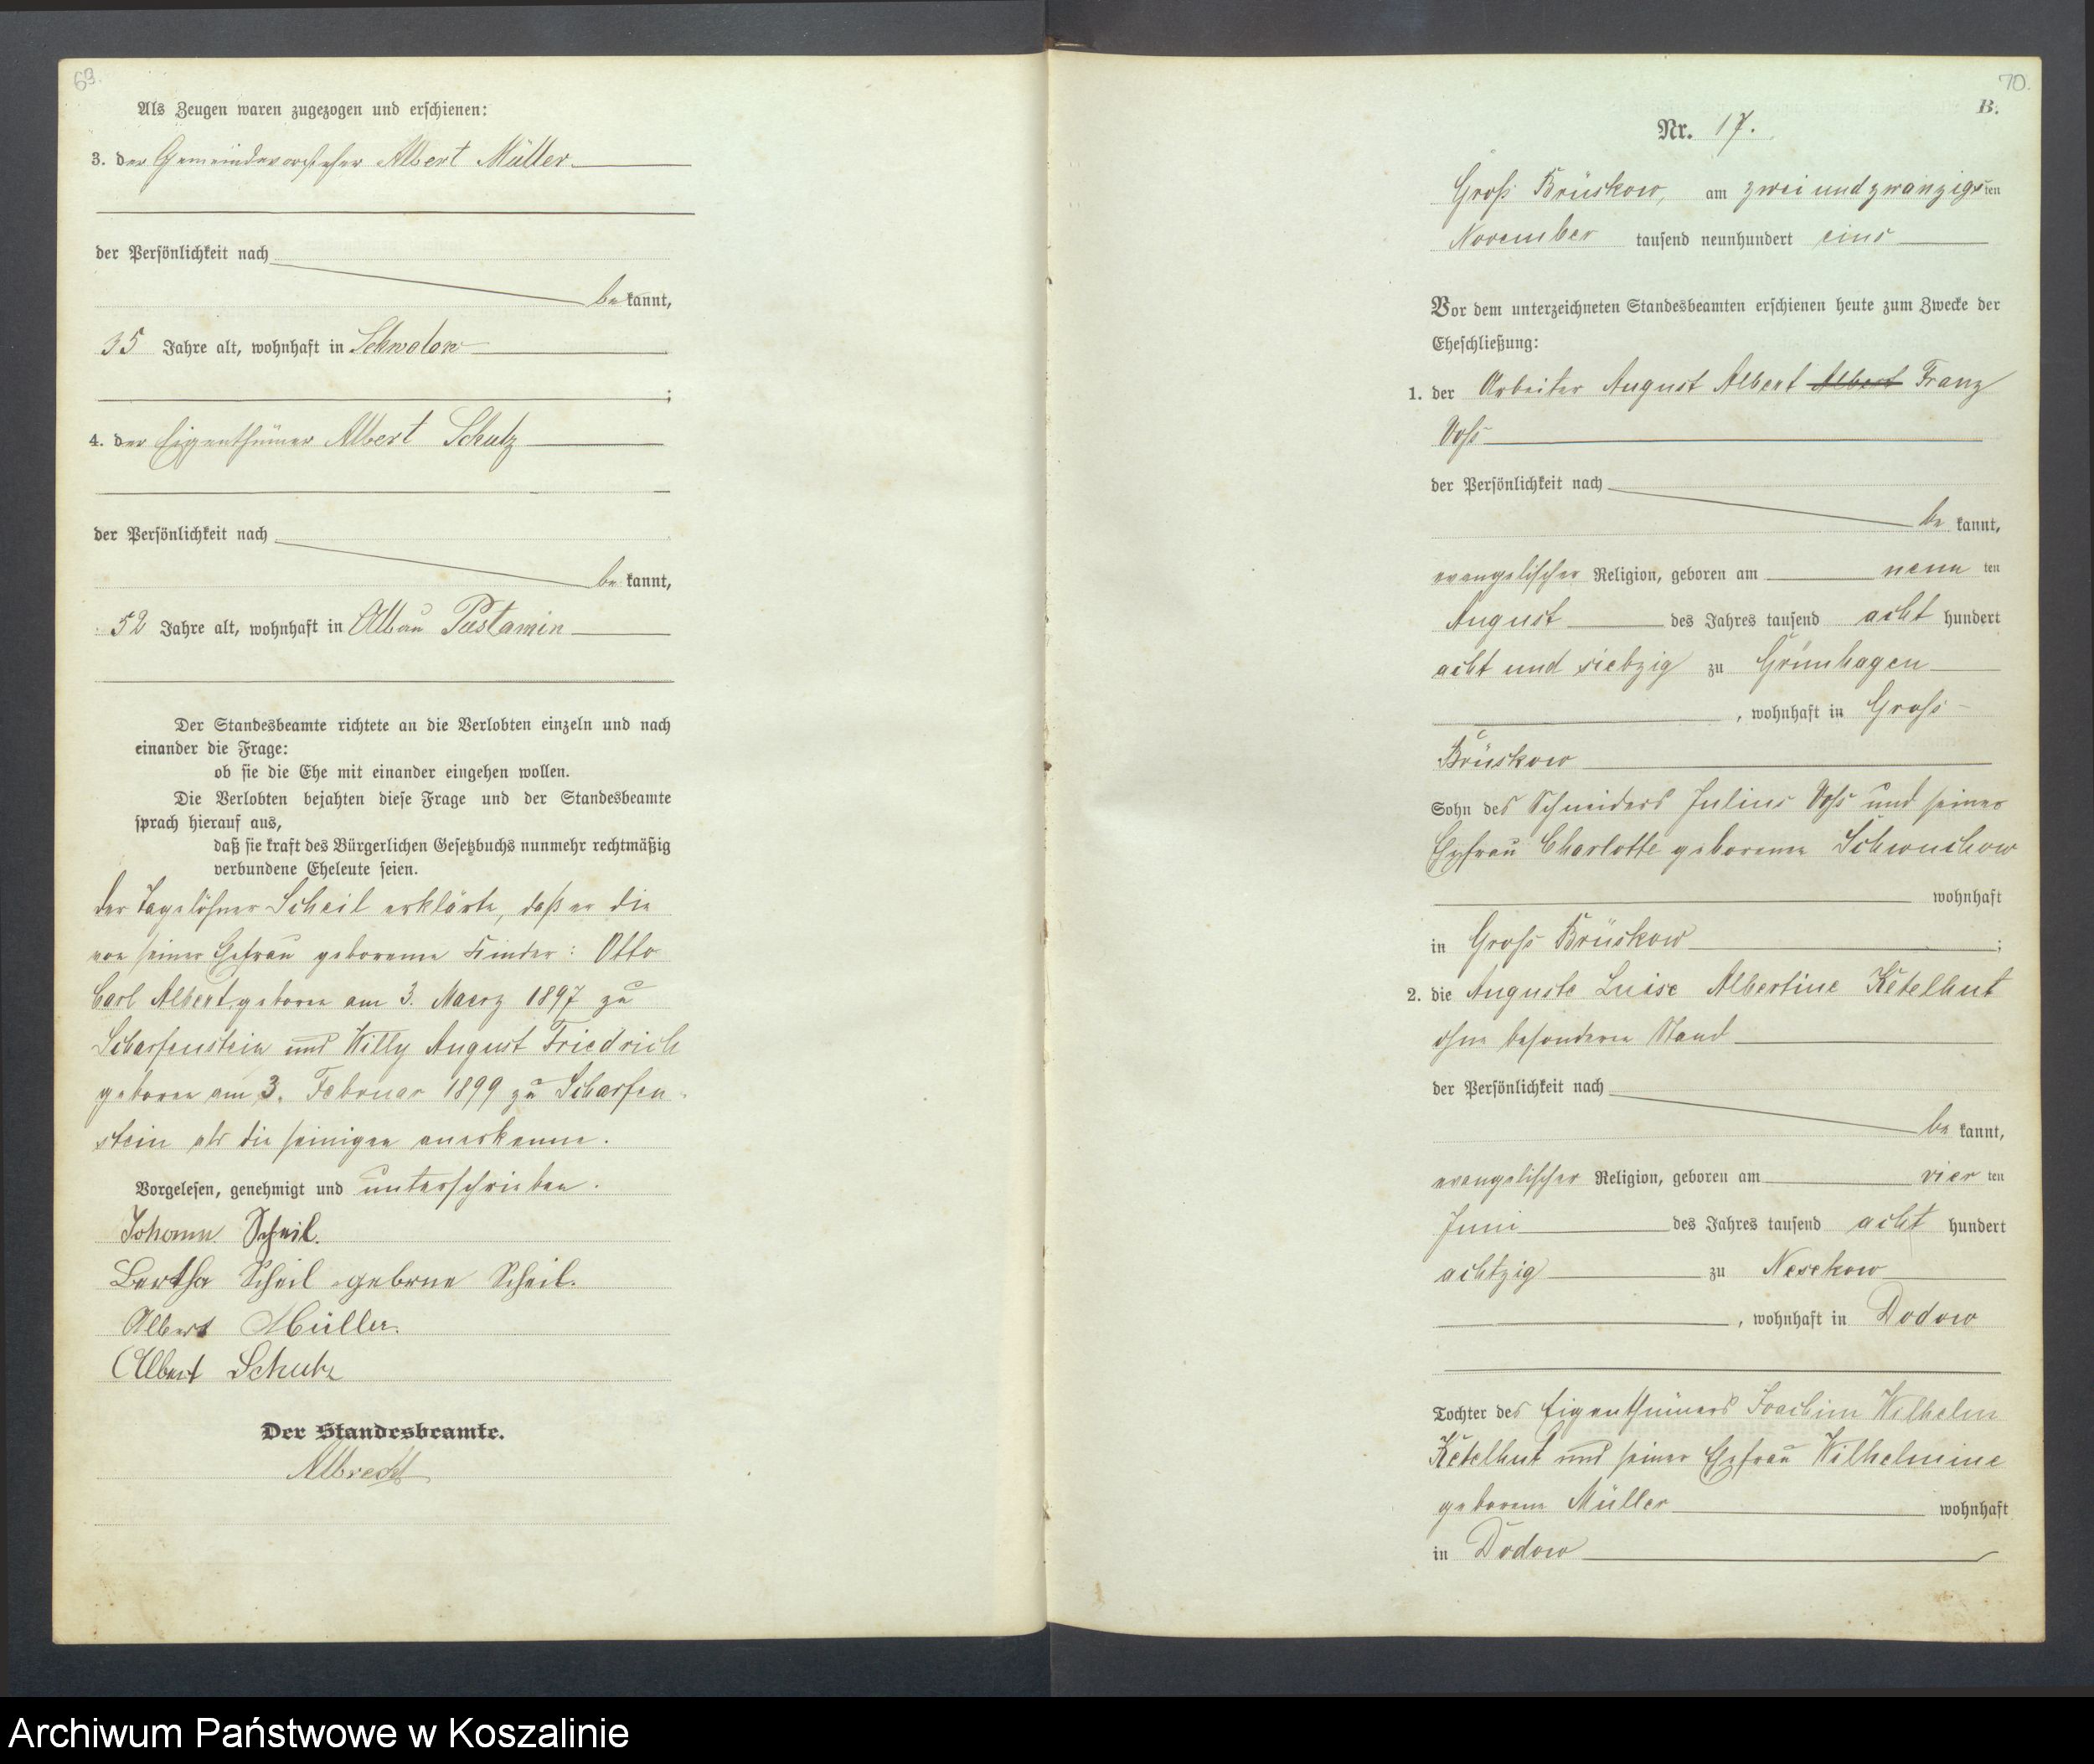 69.
Als Zeugen waren zugezogen und erschienen:
3. der Gemeindevorsteher Albert Müller
der Persönlichkeit nach
bekannt,
35 Jahre alt, wohnhaft in Schwolow
;
4. der Eigenthümer Albert Schulz
der Persönlichkeit nach
bekannt,
52 Jahre alt, wohnhaft in Abbau Pustamin
Der Standesbeamte richtete an die Verlobten einzeln und nach
einander die Frage:
ob sie die Ehe mit einander eingehen wollen.
Die Verlobten bejahten diese Frage und der Standesbeamte
sprach hierauf aus,
daß sie kraft des Bürgerlichen Gesetzbuchs nunmehr rechtmäßig
verbundene Eheleute seien.
der Tagelöhner Scheil erklärte, daß er die
von seiner Ehefrau geborenen Kinder: Otto
Carl Albert, geboren am 3. Maerz 1897 zu
Scharfenstein und Willy August Friedrich
geboren am 3. Februar 1899 zu Scharfen
stein als die seinigen anerkenne.
Vorgelesen, genehmigt und unterschrieben.
Johann Scheil.
Bertha Scheil geborne Scheil.
Albert Müller.
Albert Schulz
Der Standesbeamte.
Albrecht
70.
B.
Nr. 17.
Groß Brüskow, am zwei und zwanzigsten
November tausend neunhundert eins
Vor dem unterzeichneten Standesbeamten erschienen heute zum Zwecke der
Eheschließung:
1. der Arbeiter August Albert Albert Franz
Voß
der Persönlichkeit nach
be kannt,
evangelischer Religion, geboren am neun ten
August des Jahres tausend acht hundert
acht und siebzig zu Grünhagen
, wohnhaft in Groß-
Brüskow
Sohn des Schneiders Julius Voß und seiner
Ehefrau Charlotte geborene Schwuchow
wohnhaft
in Groß Brüskow ;
2. die Auguste Luise Albertine Ketelhut
ohne besonderen Stand
der Persönlichkeit nach
be kannt,
evangelischer Religion, geboren am vier ten
Juni des Jahres tausend acht hundert
achtzig zu Nesekow
, wohnhaft in Dodow
Tochter des Eigenthümers Joachim Wilhelm
Ketelhut und seiner Ehefrau Wilhelmine
geborene Müller wohnhaft
in Dodow
Archiwum Państwowe w Koszalinie